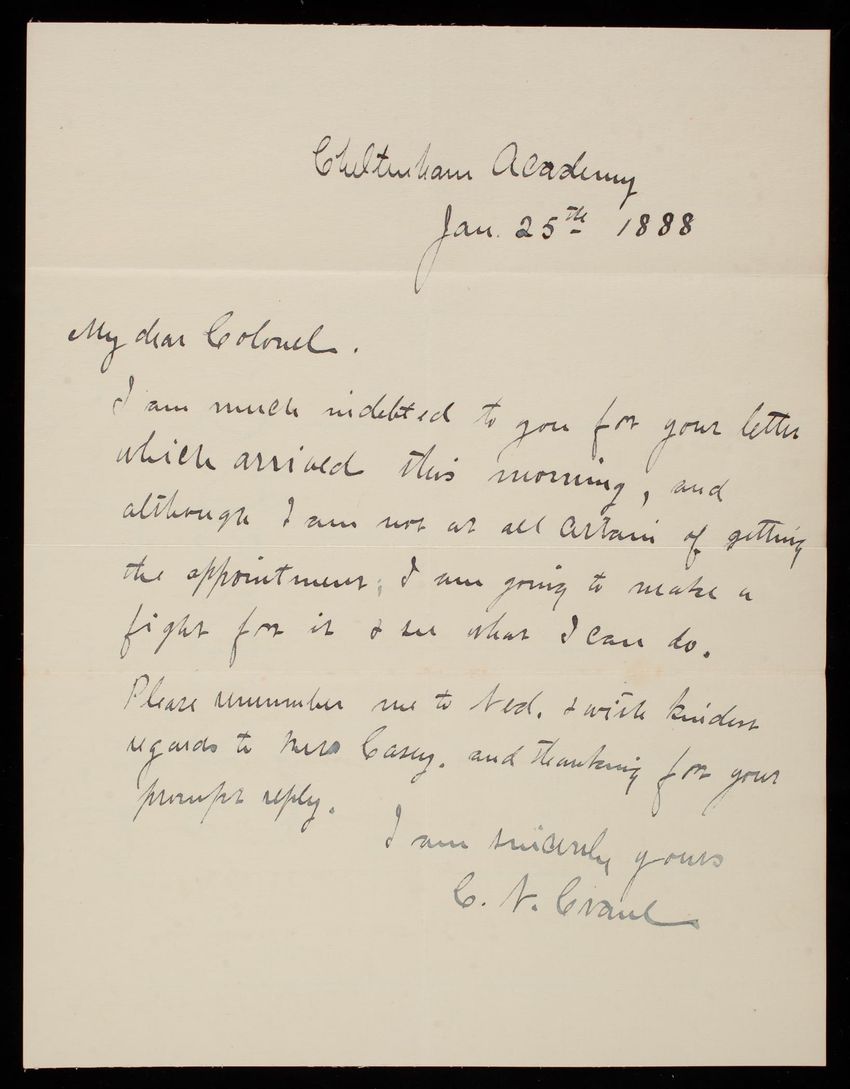 Cheltenham Academy
Jan. 25th 1888
My dear Colonel.
I am much indebted to you for your letter
which arrived this morning, and
although I am not at all certain of getting
the appointment; I am going to make a
fight for it & see what I can do.
Please remember me to Ned. & with kindest
regards to Mrs Casey. and thanking for your
prompt reply.
I am sincerely yours
C. N.